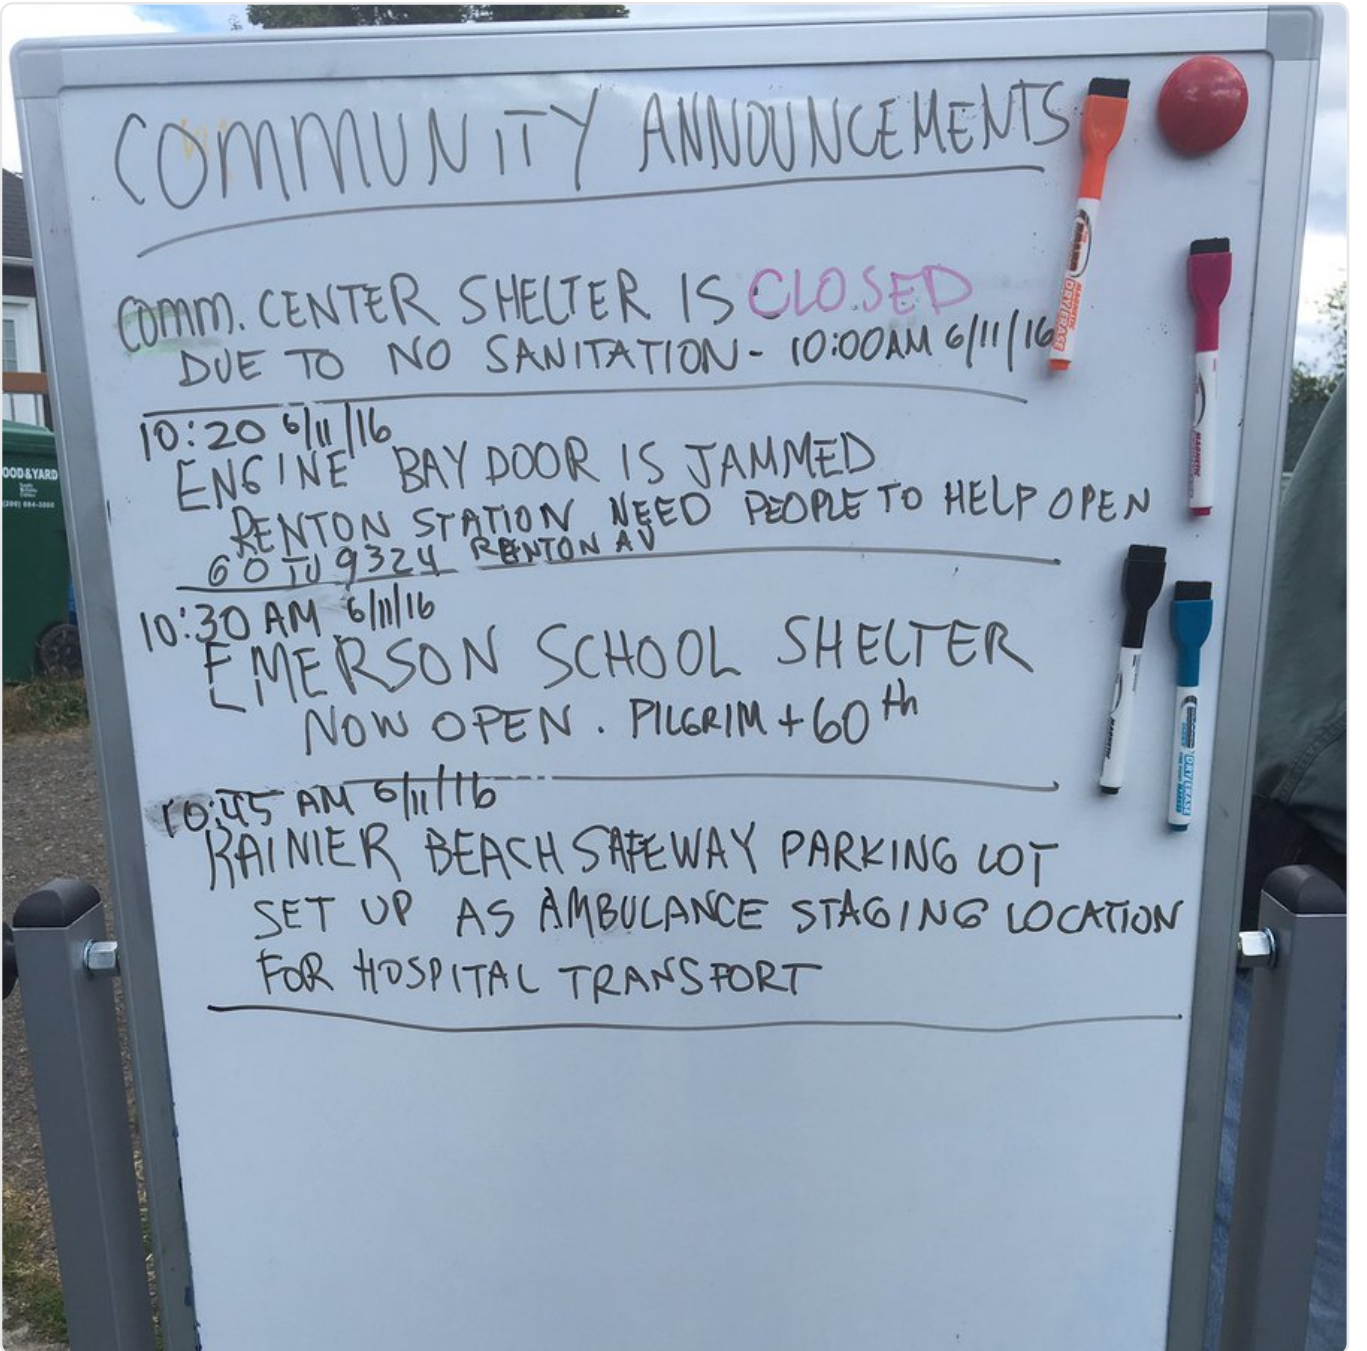 COMMUNITY ANNOUNCEMENTS
COMM. CENTER SHELTER IS CLOSED
DUE TO NO SANITATION - 10:00AM 6/11/16
10:20 6/11/16
ENGINE BAY DOOR IS JAMMED
RENTON STATION NEED PEOPLE TO HELP OPEN
GO TO 9324 RENTON AV
10:30 AM 6/11/16
EMERSON SCHOOL SHELTER
NOW OPEN. PILGRIM + 60th
10:45 AM 6/11/16
RAINIER BEACH SAFEWAY PARKING LOT
SET UP AS AMBULANCE STAGING LOCATION
FOR HOSPITAL TRANSPORT
OOD & YARD
DRY ERASE
MAGNETIC
DRY ERASE